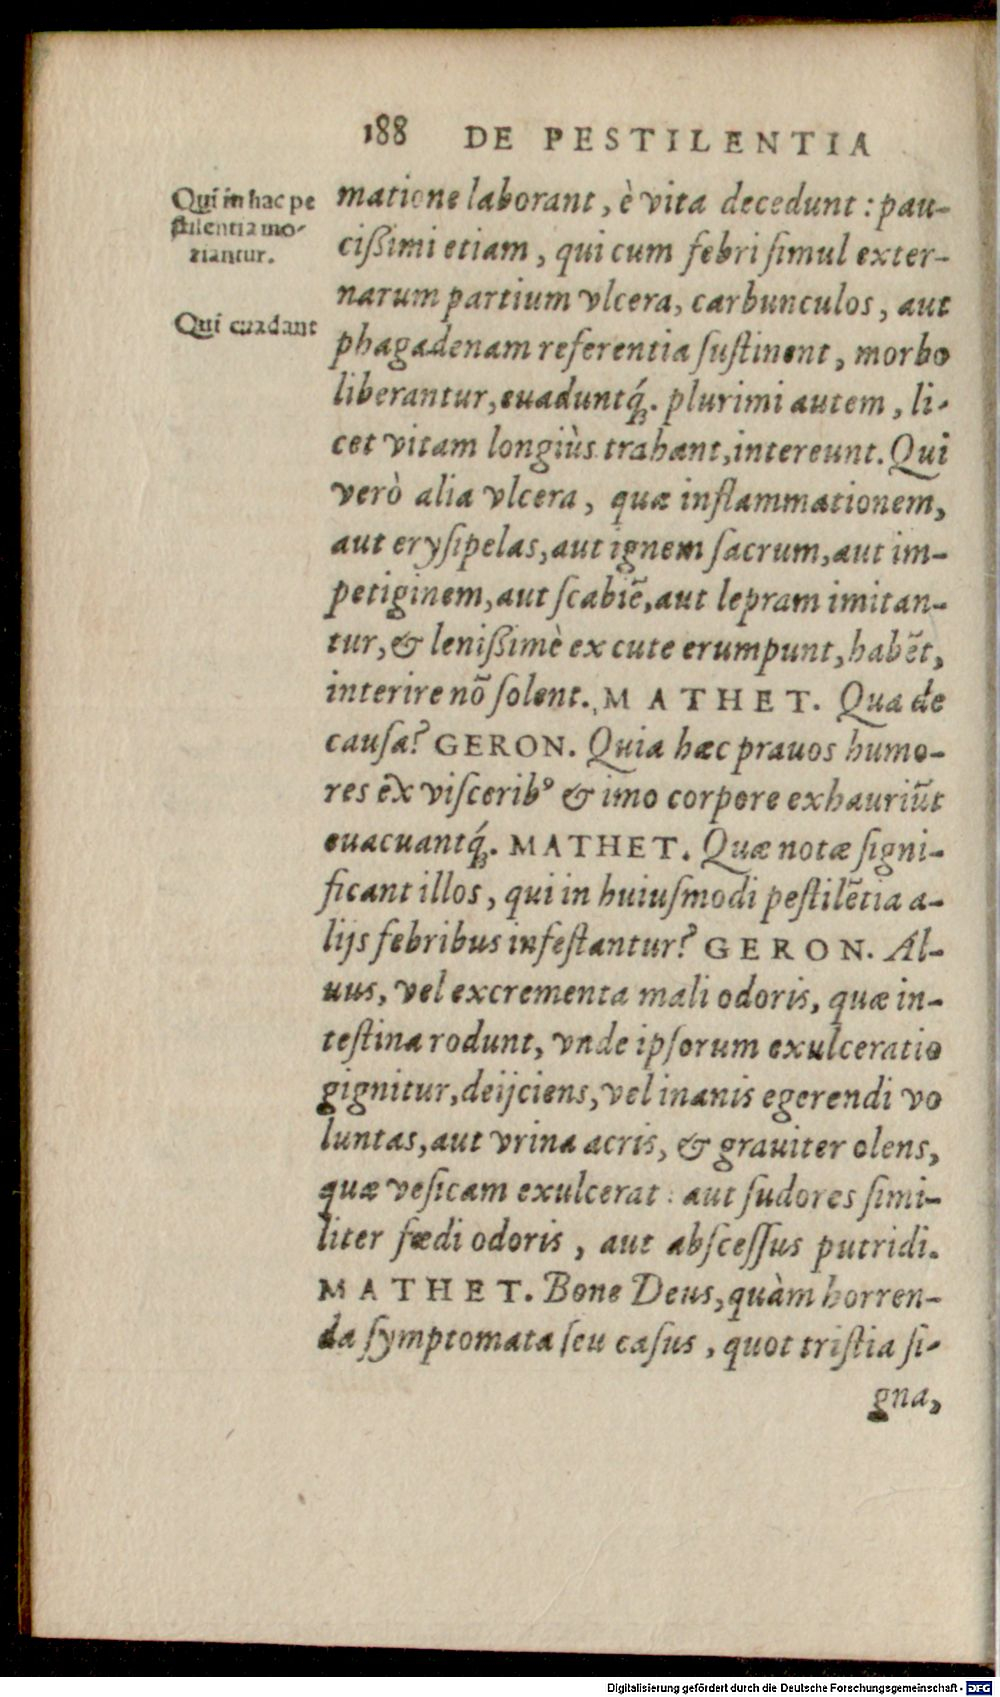 188 DE PESTILENTIA
Qui in hac pe
stilentia mo-
riantur.
Qui euadant
matione laborant, è vita decedunt : pau-
cißimi etiam, qui cum febri ſimul exter-
narum partium vlcera, carbunculos, aut
phagadenam referentia ſuſtinent, morbo
liberantur, euaduntq́ꝫ. plurimi autem, li-
cet vitam longiùs trahant, intereunt. Qui
verò alia vlcera, quæ inflammationem,
aut eryſipelas, aut ignem ſacrum, aut im-
petiginem, aut ſcabiē, aut lepram imitan-
tur, & lenißimè ex cute erumpunt, habēt,
interire nō ſolent. MATHET. Qua de
cauſa? GERON. Quia hæc prauos humo-
res ex viſceribꝰ & imo corpore exhauriūt
euacuantq́ꝫ. MATHET. Quæ notæ ſigni-
ficant illos, qui in huiuſmodi peſtilētia a-
lijs febribus infeſtantur? GERON. Al-
uus, vel excrementa mali odoris, quæ in-
teſtina rodunt, vnde ipſorum exulceratio
gignitur, deijciens, vel inanis egerendi vo
luntas, aut vrina acris, & grauiter olens,
quæ veſicam exulcerat : aut ſudores ſimi-
liter fœdi odoris, aut abſceſſus putridi.
MATHET. Bone Deus, quàm horren-
da ſymptomata ſeu caſus, quot triſtia ſi-
gna,
Digitalisierung gefördert durch die Deutsche Forschungsgemeinschaft - DFG